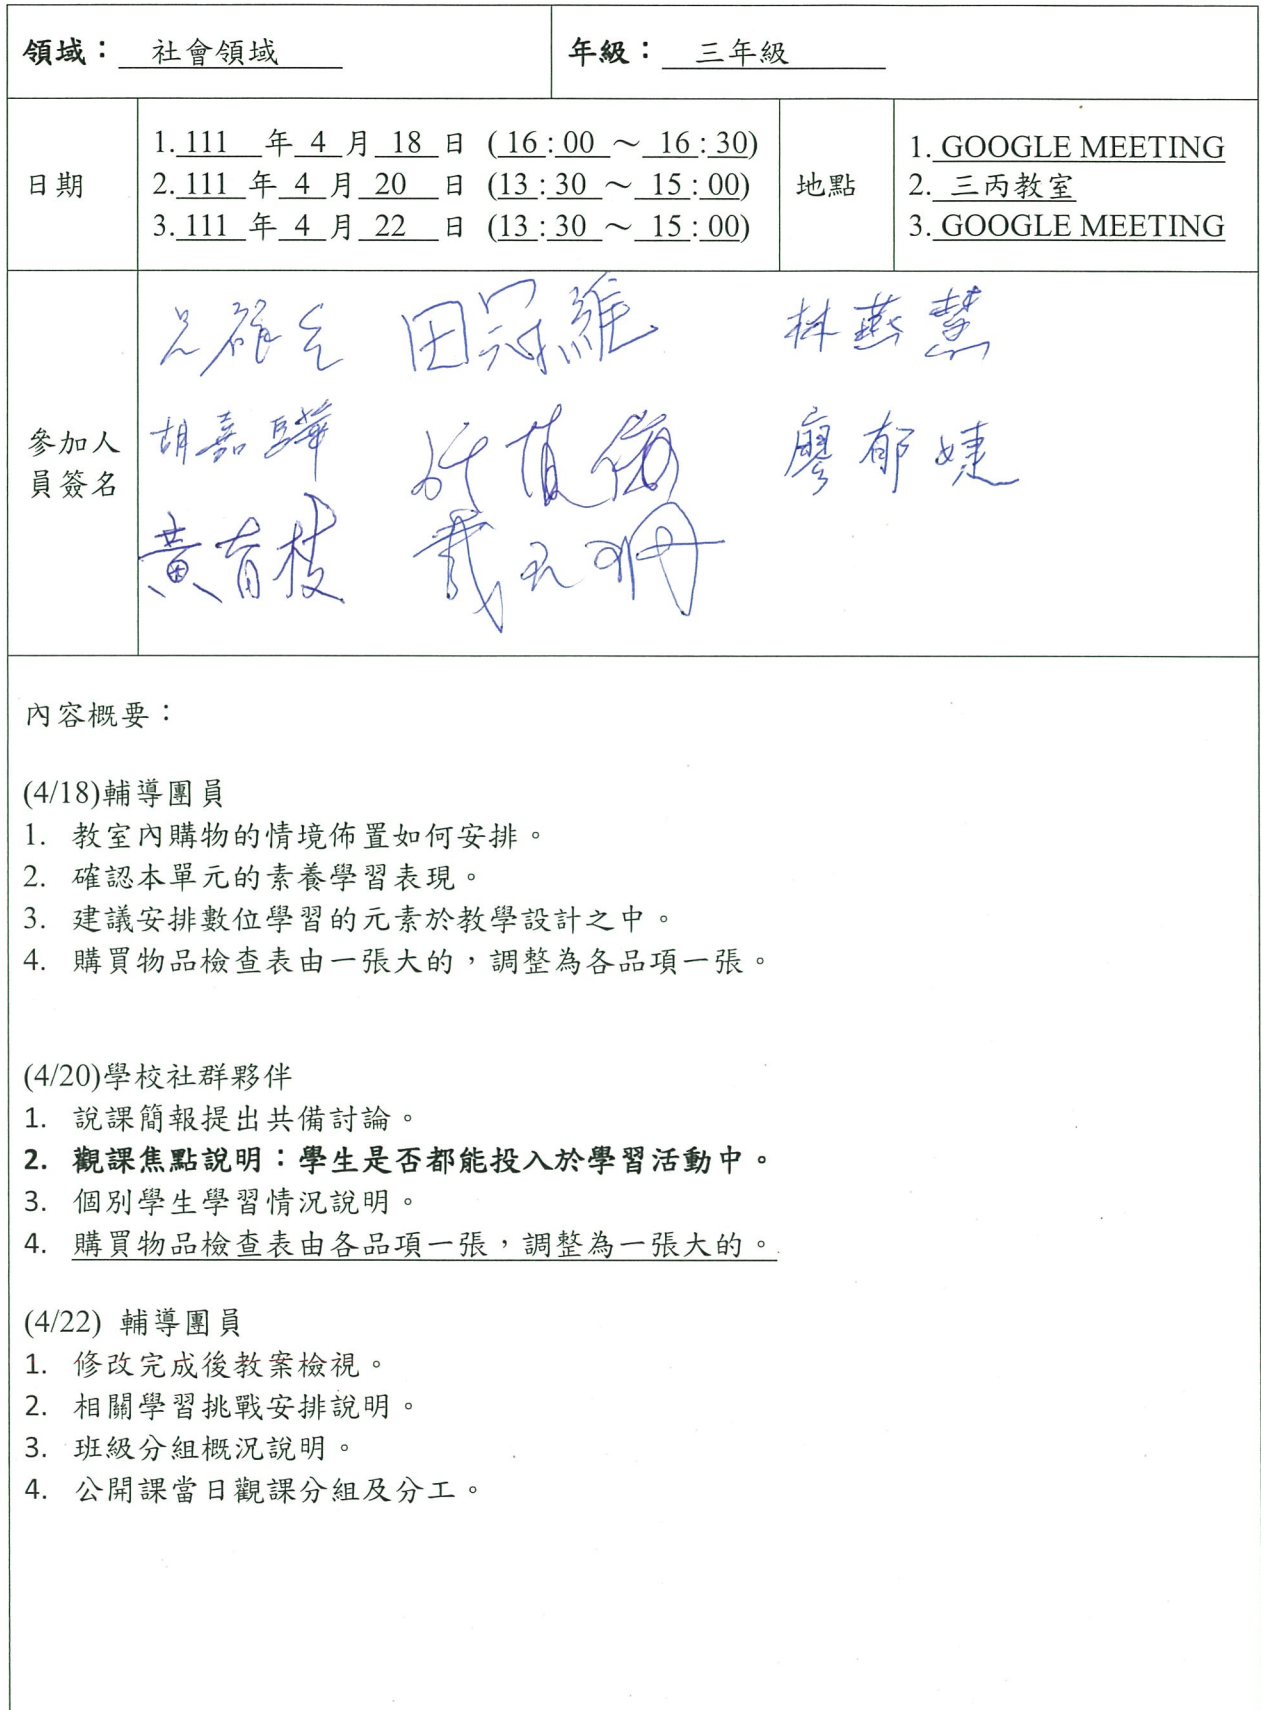 領域： 社會領域
年級： 三年級
日期
1. 111 年 4 月 18 日 (16:00 ～ 16:30)
2. 111 年 4 月 20 日 (13:30 ～ 15:00)
3. 111 年 4 月 22 日 (13:30 ～ 15:00)
地點
1. GOOGLE MEETING
2. 三丙教室
3. GOOGLE MEETING
參加人
員簽名
田冠維 林燕慧
胡嘉驊 廖郁婕
黃育枝
內容概要：
(4/18)輔導團員
1. 教室內購物的情境佈置如何安排。
2. 確認本單元的素養學習表現。
3. 建議安排數位學習的元素於教學設計之中。
4. 購買物品檢查表由一張大的，調整為各品項一張。
(4/20)學校社群夥伴
1. 說課簡報提出共備討論。
2. 觀課焦點說明：學生是否都能投入於學習活動中。
3. 個別學生學習情況說明。
4. 購買物品檢查表由各品項一張，調整為一張大的。
(4/22) 輔導團員
1. 修改完成後教案檢視。
2. 相關學習挑戰安排說明。
3. 班級分組概況說明。
4. 公開課當日觀課分組及分工。